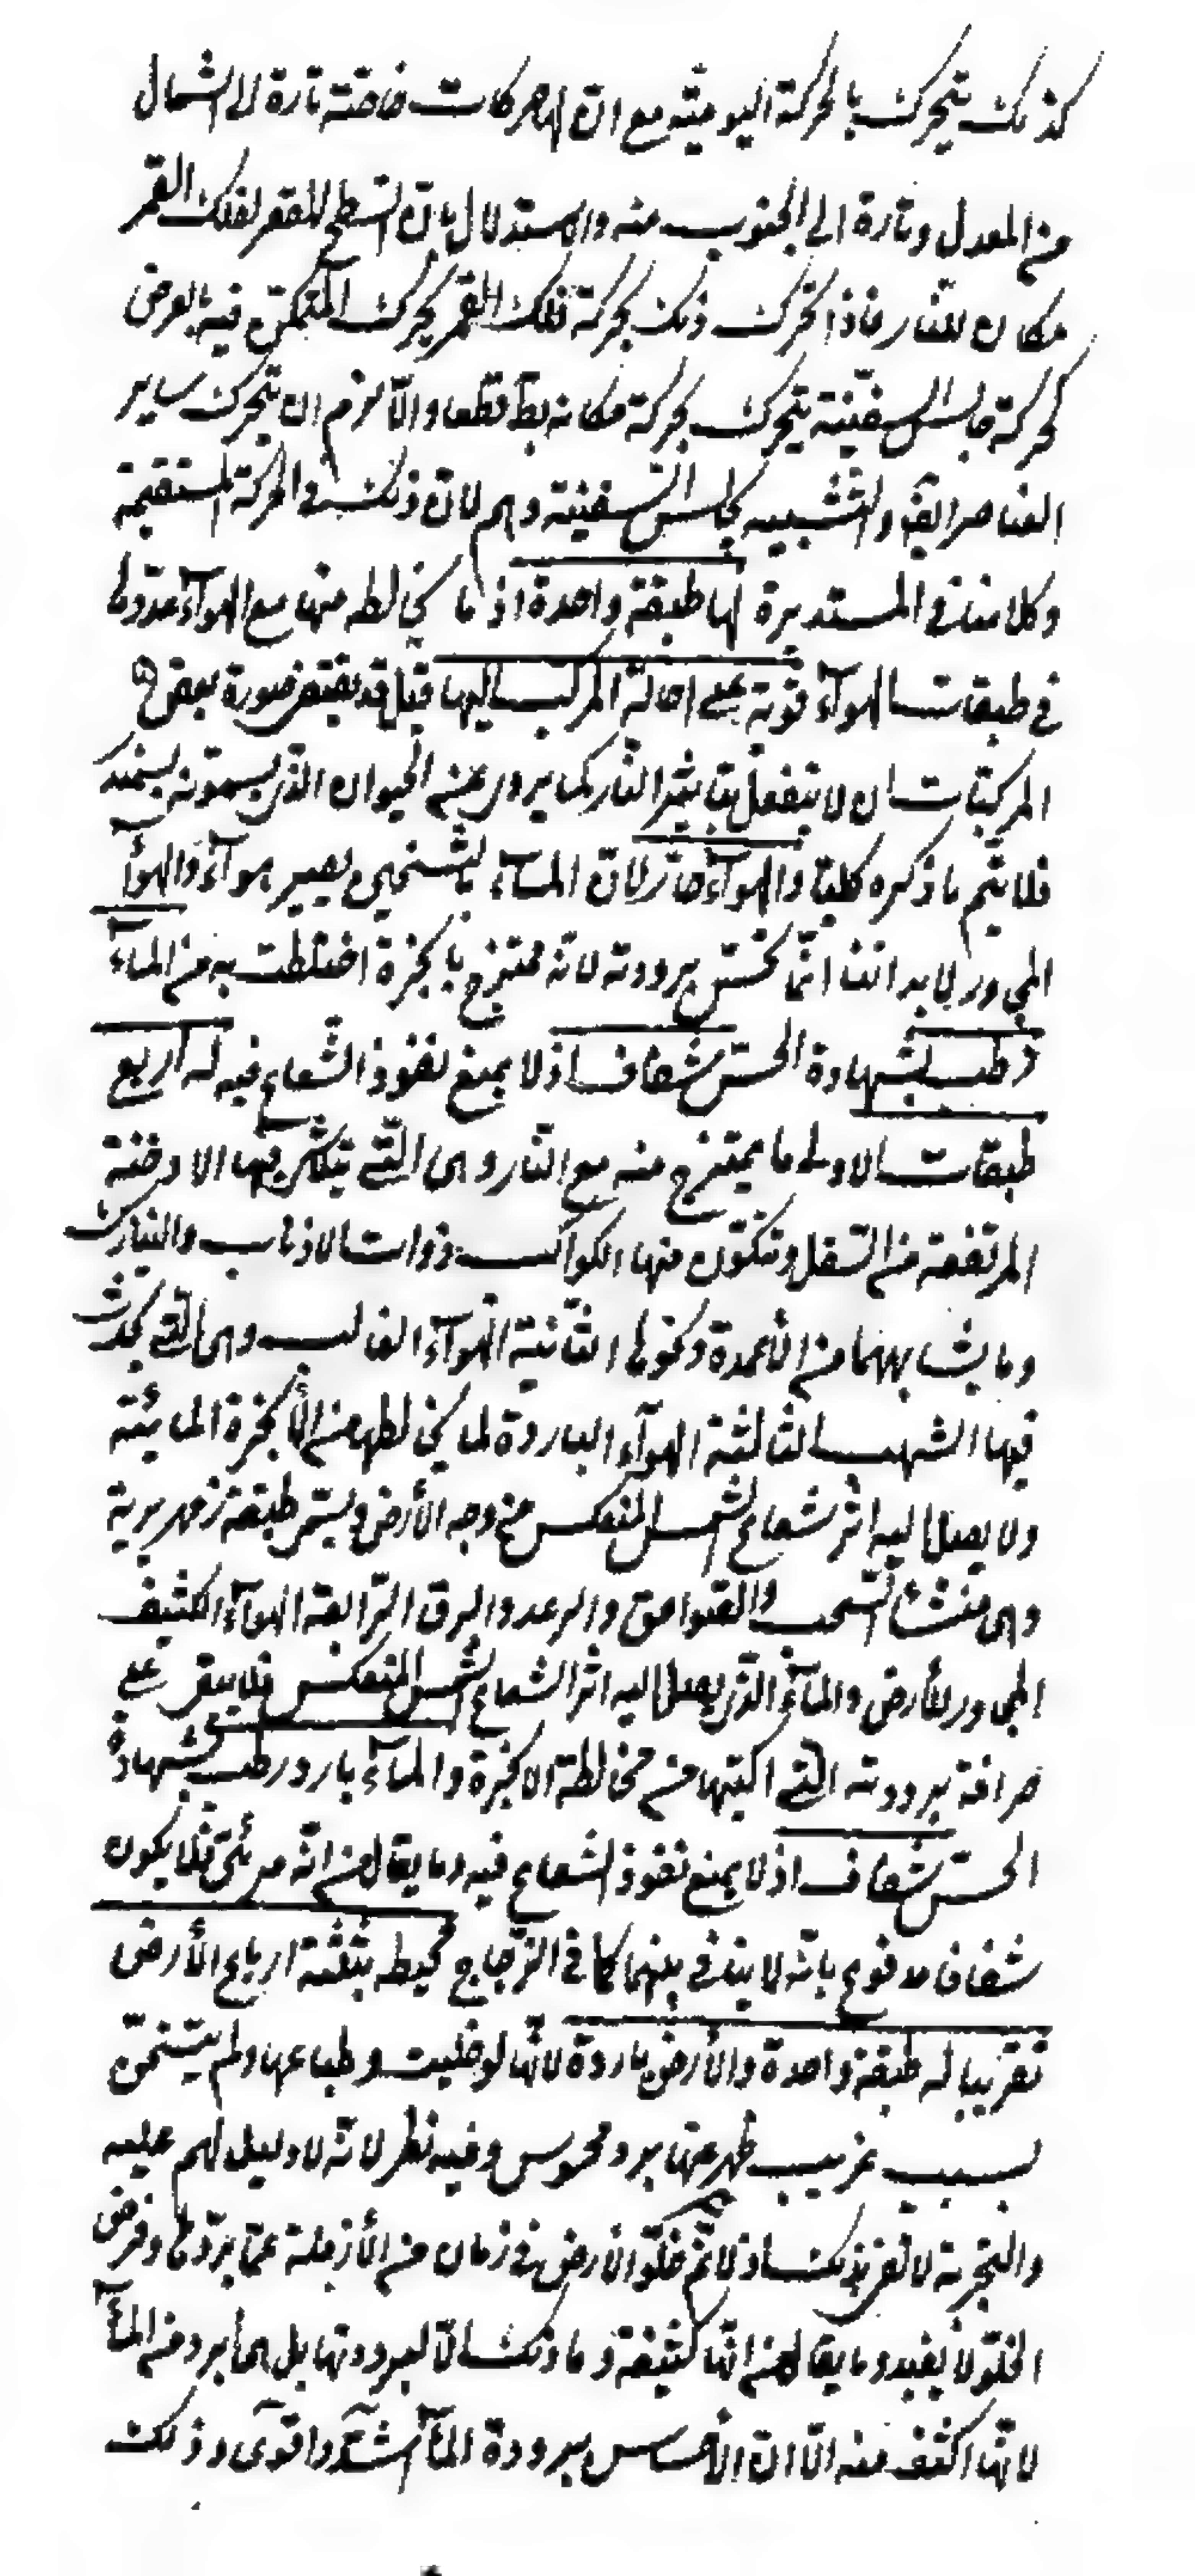 كذلك يتحرك بالحركة اليومية مع ان لها حركات خاصة تارة الى الشمال
من المعدل وتارة الى الجنوب منه والاستدلال بان السطح المقعر لفلك القمر
مكان للنار فاذا تحرك ذلك بحركة فلك القمر يحرك المتمكن فيه بالعرض
كحركة جالس السفينة يتحرك بحركة مكانه بط قطعا والا لزم ان يتحرك ساير
العناصر ايض والتشبيه بجالس السفينة وهم لان ذلك فى الحركة المستقيمة
وكلامنا فى المستديرة لها طبقة واحدة اذ ما يخالطه منها مع الهوآء معدودها
فى طبقات الهوآء قوية على احالة المركب اليها قيل قد يقتضى صورة بعض
المركبات ان لا ينفعل بتاثير النار كما يروى عن الحيوان الذى يسمونه بسمندر
فلا يتم ما ذكره كليا والهوآء حار لان المآء بالتسخين يصير هوآء والهوآء
المجاور لابداننا انما نحس ببرودته لانه ممتزج بابخزة اختلطت به من المآء
رطب بشهادة الحس شفاف اذ لا يمنع نفوذ الشعاع فيه له اربع
طبقات الاولى ما يمتزج منه مع النار وهى التى يتكثر فيها الادخنة
المرتفعة من السفل وتتكون منها الكواكب ذوات الاذناب والنيازك
وما يشابههما من الأعمدة ونحوها الثانية الهوآء الغالب وهى التى يحدث
فيها الشهب الثالثة الهوآء الباردة لما يخالطها من الأبخرة المائية
ولا يصل اليه اثر شعاع الشمس المنعكس من وجه الأرض ويسمى طبقة زمهريرية
وهى منشأ السحب والصواعق والرعد والبرق الرابعة الهوآء الكثيف
المجاور للأرض والمآء الذى يصل اليه اثر الشعاع الشمس المنعكس فلا يبقى على
صرافة برودته التى اكتسبها من مخالطة الابخرة والمآء بارد رطب بشهادة
الحس شفاف اذ لا يمنع نفوذ الشعاع فيه وما يقال من انه مرئى فلا يكون
شفافا مدفوع بانه لا ينافى بينهما كما فى الزجاج محيط بثلثة ارباع الأرض
تقريبا له طبقة واحدة والأرض باردة لانها لو خليت وطباعها ولم يتسخن
بسبب غريب ظهر عنها برد محسوس وفيه نظر لانه لا دليل لهم عليه
والتجربة لا تعز بذلك اذ لا نم خلو الارض فى زمان من الأزمنة عما يبردها وفرض
الخلو لا يفيد وما يقال من انها كثيفة وما ذلك الا لبرودتها بل هما برد من المآء
لانها اكثف منه الا ان الأحساس ببرودة المآء اشد واقوى وذلك